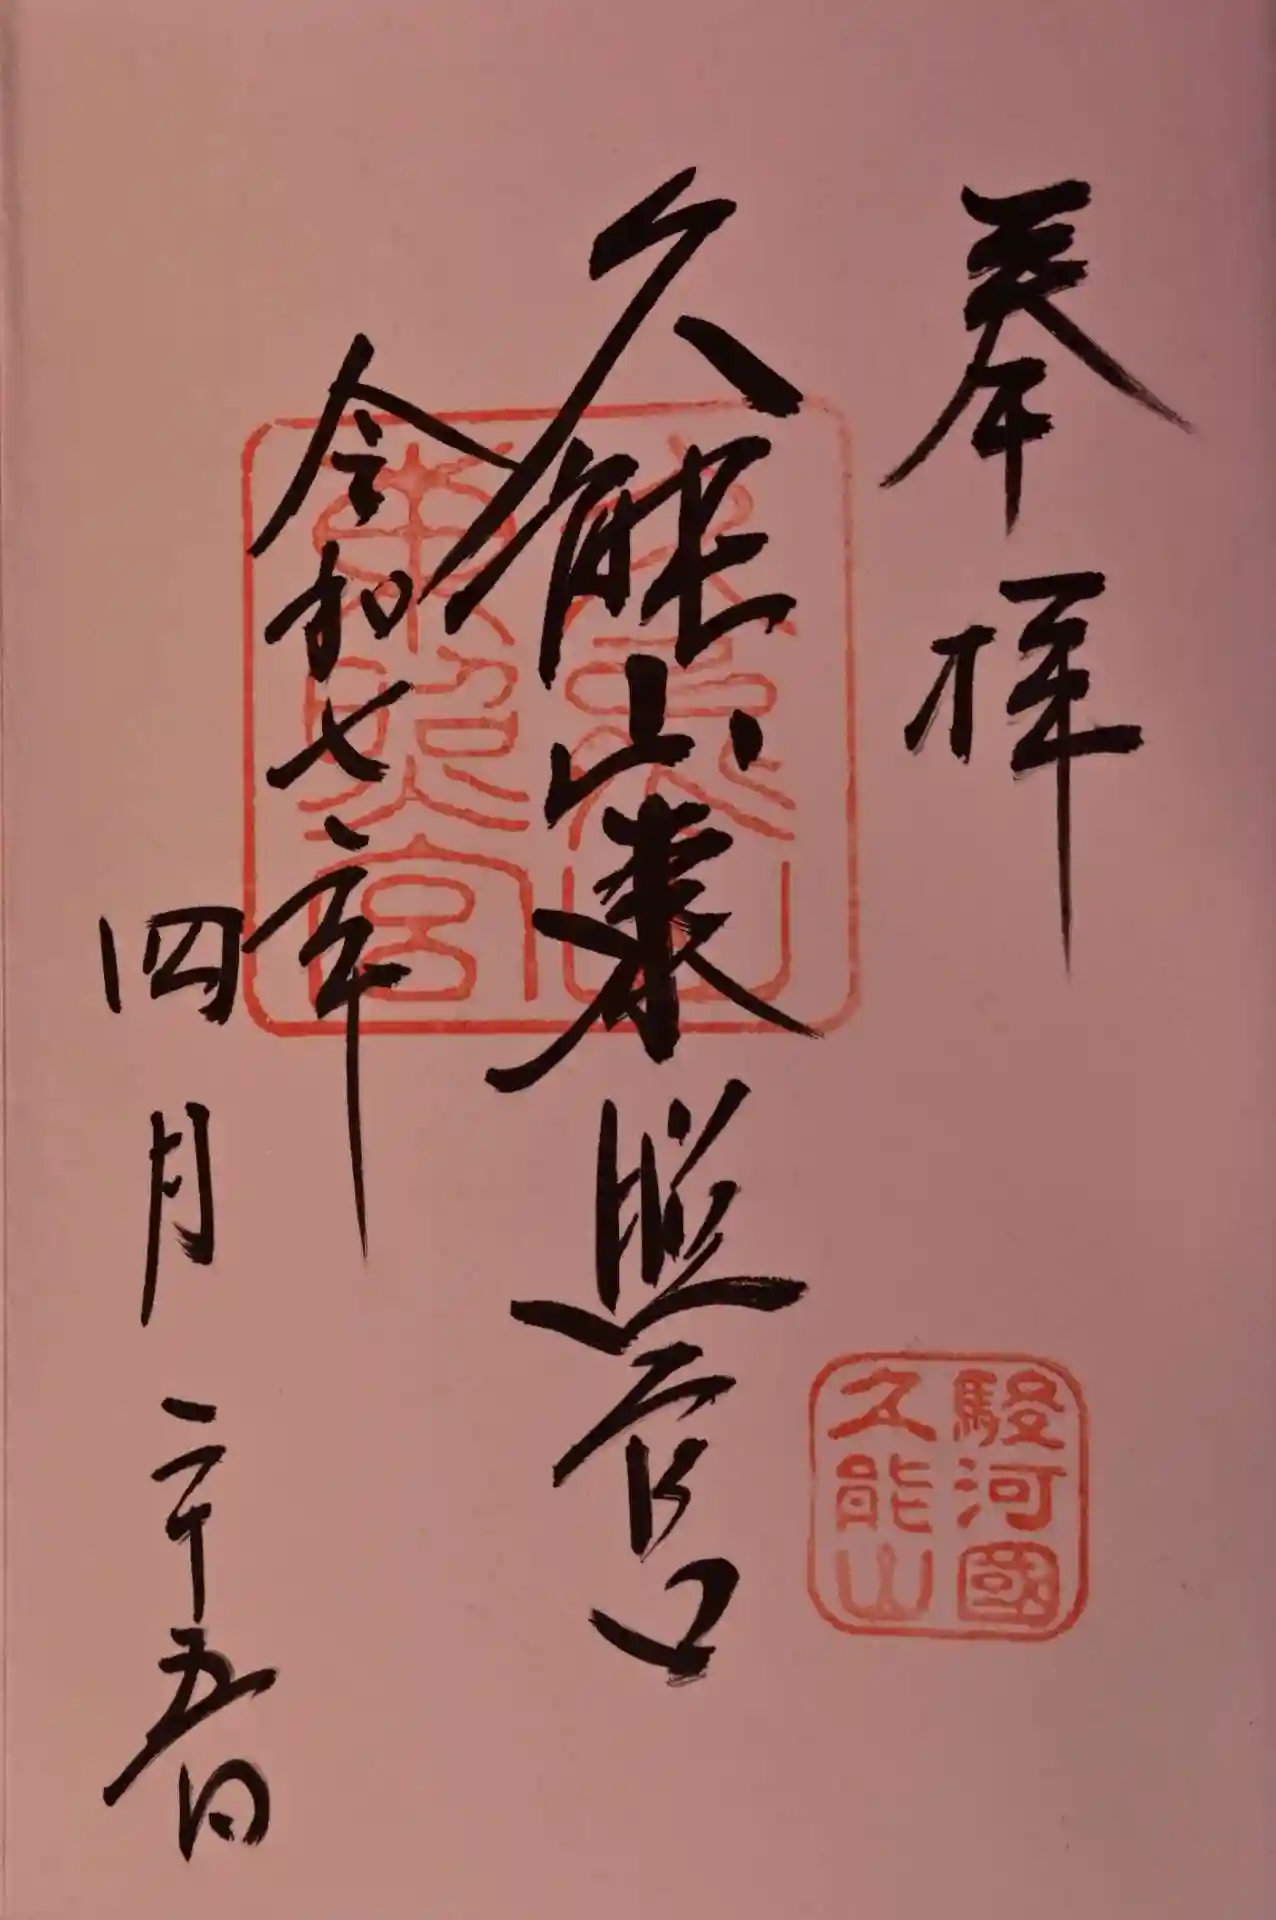 奉拝
久能山東照宮
令和七年
四月二十五日
駿河國
久能山
久能山
東照宮